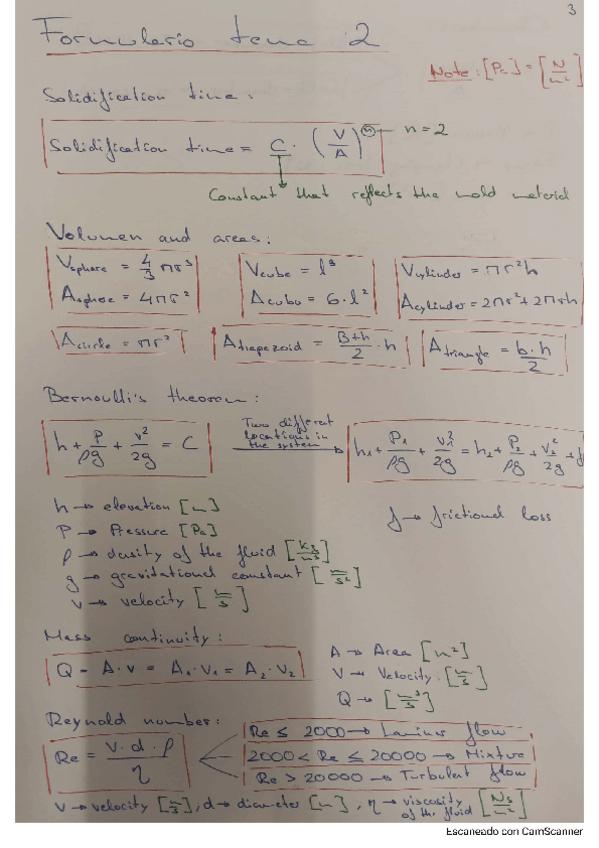 3
Formulario tema 2
Note: [Pa] = [N/m²]
Solidification time:
Solidification time = C · (V/A)ⁿ → n = 2
Constant that reflects the mold material
Volumen and areas:
Vsphere = 4/3 πr³
Asphere = 4πr²
Vcube = l³
Acube = 6·l²
Vcylinder = πr²h
Acylinder = 2πr² + 2πrh
Acircle = πr²
Atrapezoid = B+h/2 · h
Atriangle = b·h/2
Bernoulli's theorem:
h + P/ρg + v²/2g = C
Two different
locations in
the system
h₁ + P₁/ρg + v₁²/2g = h₂ + P₂/ρg + v₂²/2g + f
h → elevation [m]
P → Pressure [Pa]
ρ → density of the fluid [kg/m³]
g → gravitational constant [m/s²]
v → velocity [m/s]
f → frictional loss
Mass continuity:
Q = A·v = A₁·v₁ = A₂·v₂
A → Area [m²]
V → Velocity [m/s]
Q → [m³/s]
Reynold number:
Re = v·d·ρ/η
Re ≤ 2000 → Laminar flow
2000 < Re ≤ 20000 → Mixture
Re > 20000 → Turbulent flow
v → velocity [m/s], d → diameter [m], η → viscosity of the fluid [Ns/m²]
Escaneado con CamScanner